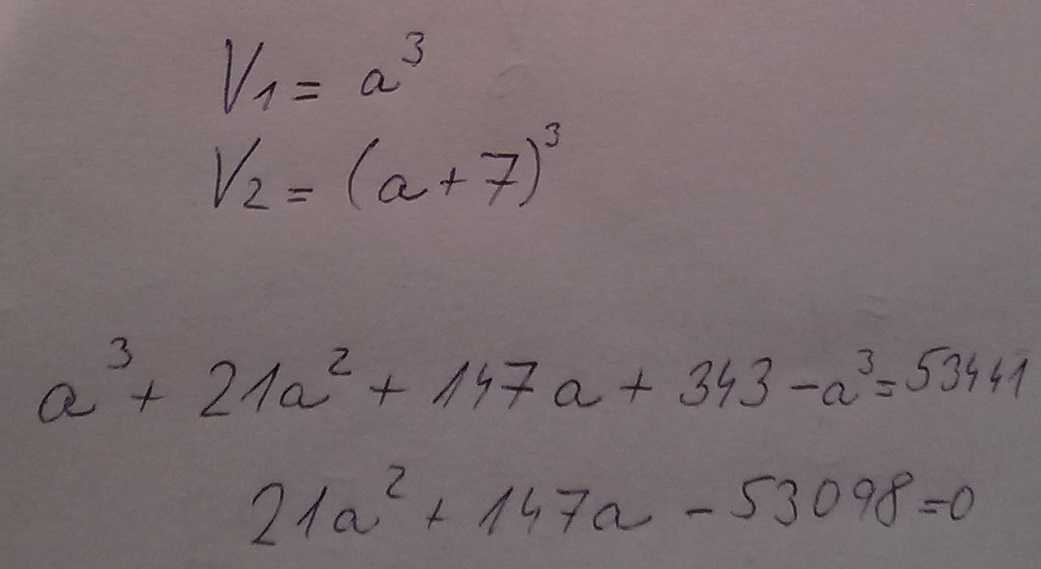 V1 = a³
V2 = (a+7)³
a³ + 21a² + 147a + 343 - a³ = 53441
21a² + 147a - 53098 = 0